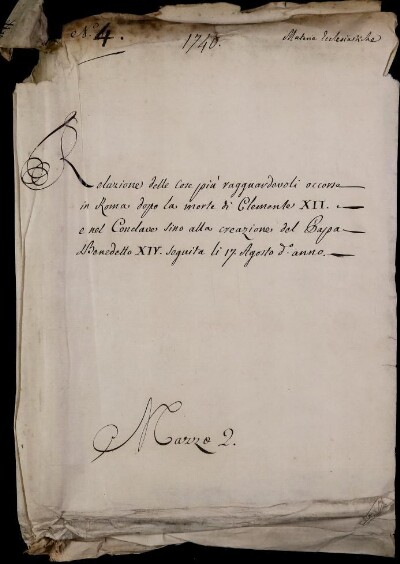 N.° 4.
1740.
Materie Ecclesiastiche
Relazione delle cose più ragguardevoli occorse
in Roma dopo la morte di Clemente XII.
e nel Conclave sino alla creazione del Pappa
Benedetto XIV. seguita li 17. Agosto d.° anno.
Mazzo 2.